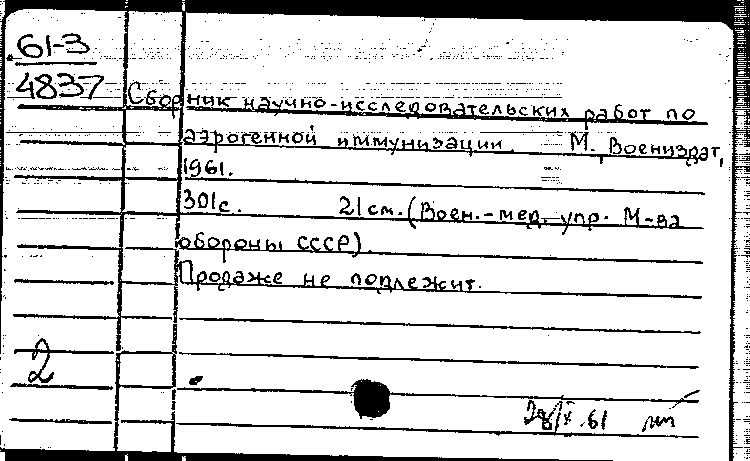 61-3
4837
Сборник научно-исследовательских работ по
аэрогенной иммунизации. М., Воениздат,
1961.
301с. 21см. (Воен.-мед. упр. М-ва
обороны СССР).
Продаже не подлежит.
2
61